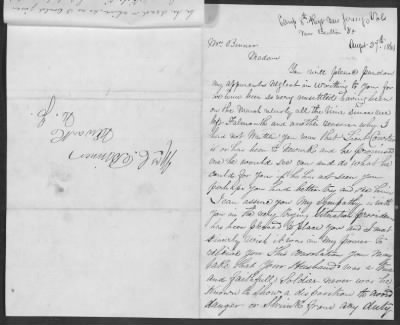 Camp 8th Regt New Jersey Vols
New Baltimore
Augst 27th 1863
Mrs Bonner
Madam
You will please pardon
my apparent neglect in writing to you for
we have been so very unsettled having been
on the march nearly all the time since we
left Falmouth and another reason why I
had not written you was that
is or has been to Newark and he promised
me he would see you and do what he
could for you if he has not seen you
perhaps you had better try and see him
I can assure you my sympathy is with
you in the very trying situation providence
has been pleased to place you and I most
sincerely wish it was in my power to
relieve you This consolation you may
take that your Husband was a true
and faithful Soldier never was he
known to show a disposition to avoid
danger or shrink from any duty
Mrs
Newark
N. J.